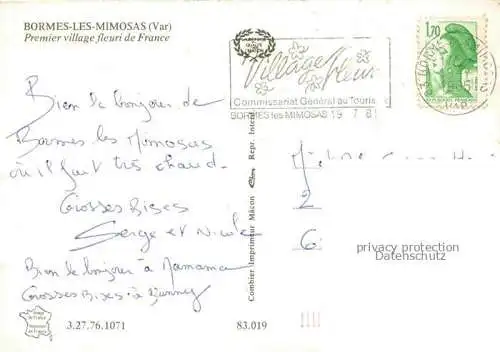 BORMES-LES-MIMOSAS (Var)
Premier village fleuri de France
Bien le bonjour de
Bormes les Mimosas
où il fait très chaud.
Grosses Bises
Serge et Nicole
Bien le bonjour à Mamama
Grosses Bises à
3.27.76.1071
83.019
Combier Imprimeur Mâcon
Repr. Interd.
Village fleuri
Commissariat Général au Tourisme
BORMES les MIMOSAS 19 7 8
1,70
2
6
privacy protection
Datenschutz